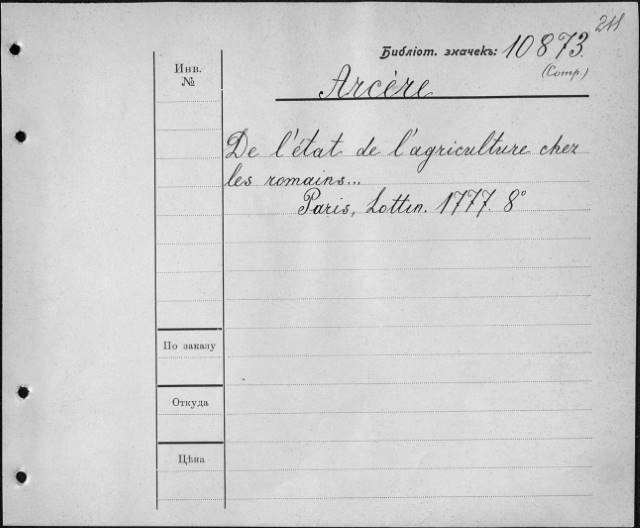 211
Библіот. значекъ: 10873.
(Comp.)
Инв.
№
Arcère
De l'état de l'agriculture chez
les romains...
Paris, Lottin. 1777. 8°
По заказу
Откуда
Цѣна